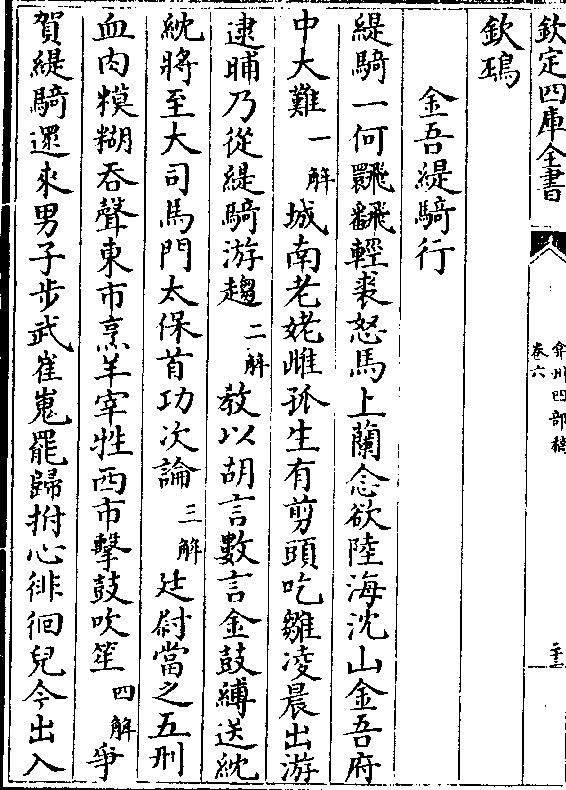 欽定四庫全書
弇州四部稿
卷六
二十三
欽鵶
金吾緹騎行
緹騎一何飜飜輕裘怒馬上蘭念欲陸海沈山金吾府
中大難一解城南老姥雌孤生有剪頭吃雛凌晨出游
逮晡乃從緹騎游趨二解教以胡言數言金鼓縛送統
統將至大司馬門太保首功次論三解廷尉當之五刑
血肉糢糊吞聲東市烹羊宰牲西市擊鼓吹笙四解爭
賀緹騎還來男子步武崔嵬罷歸拊心徘徊兒今出入